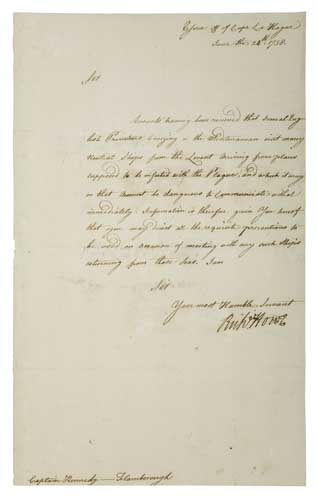 Essex off of Cape La Hogue
June the 24th. 1758.
Sir
Accounts having been received that several Eng-
lish Privateers cruizing in the Mediterranean visit many
Neutral Ships from the Levant coming from places
supposed to be infected with the Plague, and which it may
on that account be dangerous to Communicate withal
immediately: Information is therefore given You hereof
that you may direct all the requisite precautions to
be used, on occasion of meeting with any such Ships
returning from those Seas. I am
Sir
Your most Humble Servant
Richd Howe
Captain Kennedy — Flamborough